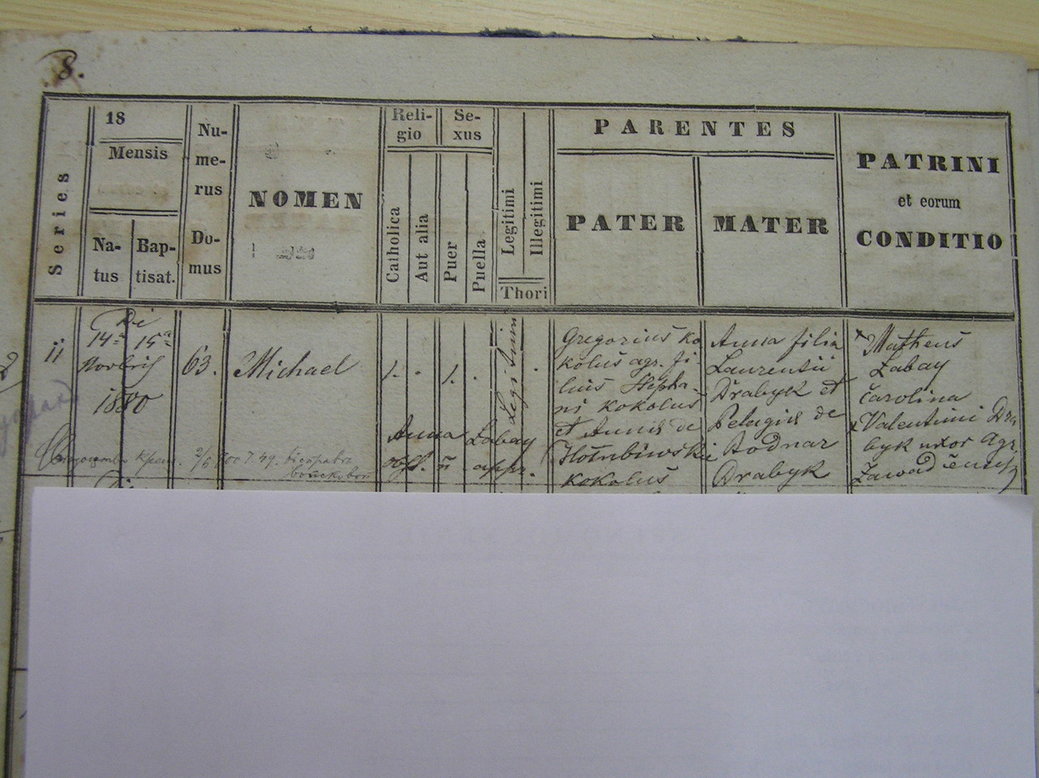 8.
Series
18
Mensis
Na-
tus
Bap-
tisat.
Nu-
me-
rus
Do-
mus
NOMEN
Reli-
gio
Catholica
Aut alia
Se-
xus
Puer
Puella
Legitimi
Illegitimi
Thori
PARENTES
PATER
MATER
PATRINI
et eorum
CONDITIO
11
Di
14. 15a
Novbris
1880
63.
Michael
1. .
1. .
Legitimi
Gregorius Ko
kolus agr. fi-
lius Stepha-
ni Kokolus
et Annis de
Hołubiwski
Kokolus
Anna filia
Laurentii
Drabyk et
Pelagis de
Bodnar
Drabyk
Matheus
Labay
Carolina
Valentini Dra
byk uxor agr.
Anna Labay
obst. appr.